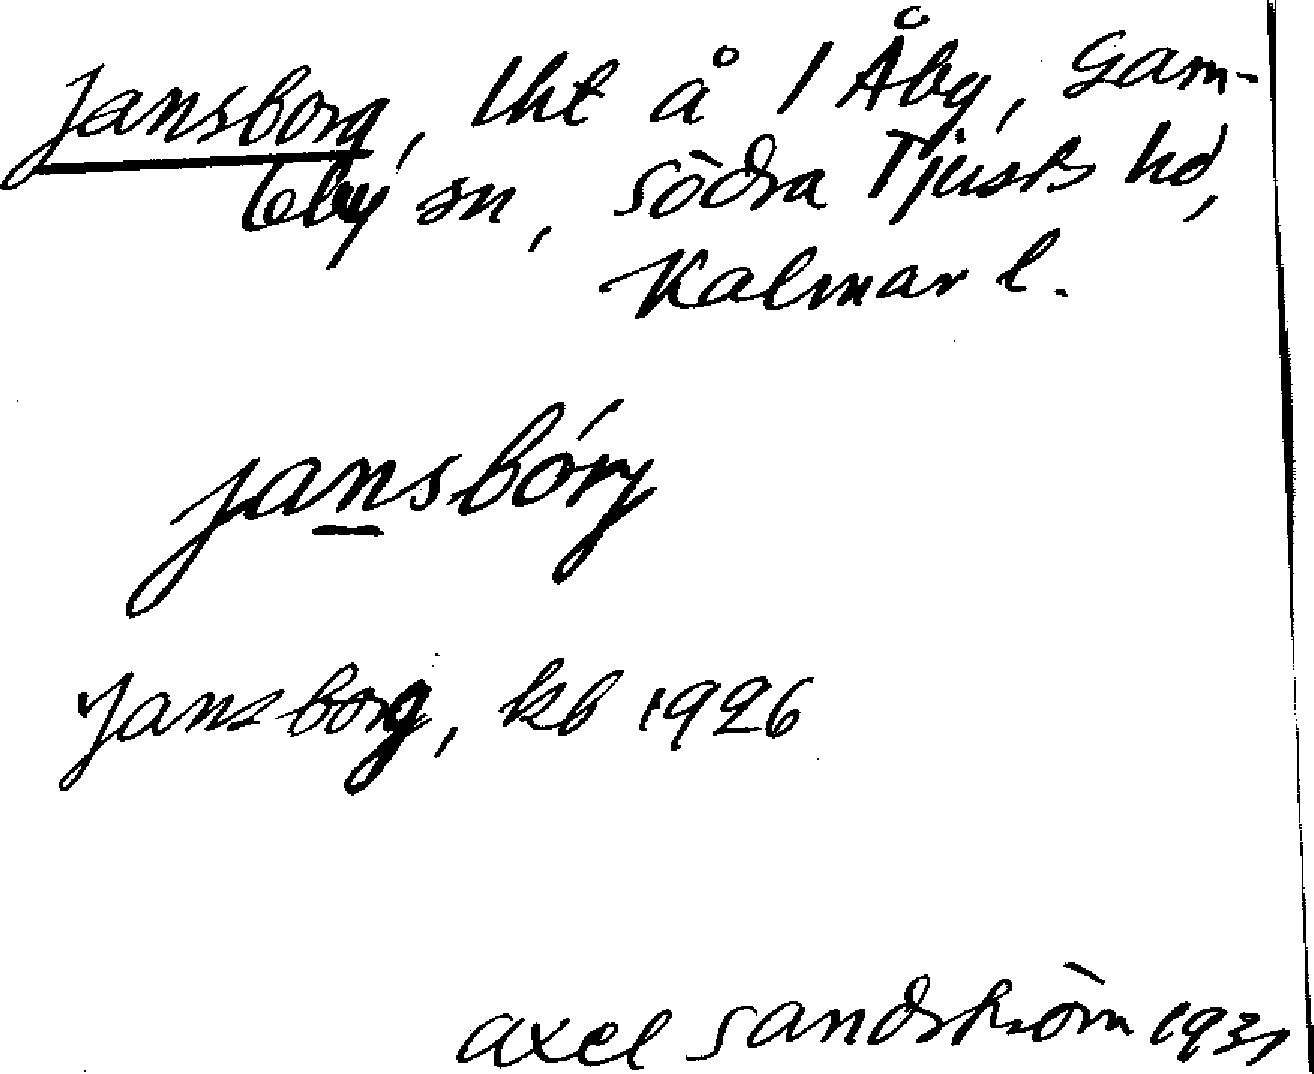 Jansborg, lht å 1 Åby, Gam-
leby sn, södra Tjusts hd,
Kalmar l.
jansbórj
Jansborg, kb 1926
Axel Sandström 1931